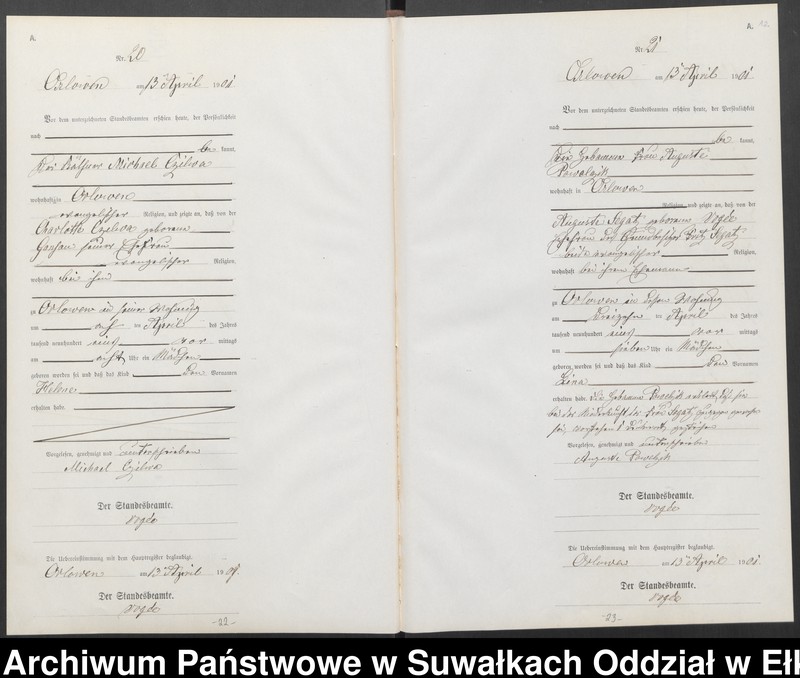 A.
Nr. 20
Orlowen am 13 April 1901
Vor dem unterzeichneten Standesbeamten erschien heute, der Persönlichkeit
nach
be kannt,
Der Käthner Michael Czilwa
wohnhaft in Orlowen
evangelischer Religion, und zeigte an, daß von der
Charlotte Czilwa geborene
seiner Ehefrau
evangelischer Religion,
wohnhaft bei ihm
zu Orlowen in seiner Wohnung
am acht ten April des Jahres
tausend neunhundert eins vor mittags
um acht Uhr ein Mädchen
geboren worden sei und daß das Kind den Vornamen
Helene
erhalten habe.
Vorgelesen, genehmigt und unterschrieben
Michael Czilwa
Der Standesbeamte.
Vogdo
Die Uebereinstimmung mit dem Hauptregister beglaubigt.
Orlowen am 13 April 1901.
Der Standesbeamte.
Vogdo
-22-
A. 12.
Nr. 21
Orlowen am 13 April 1901.
Vor dem unterzeichneten Standesbeamten erschien heute, der Persönlichkeit
nach
be kannt,
Die Hebamme Frau Auguste
Powalzik
wohnhaft in Orlowen
Religion, und zeigte an, daß von der
Auguste Segatz geborene Vogdo
Ehefrau des Grundbesitzer Fritz Segatz
beide evangelischer Religion,
wohnhaft bei ihrem Ehemann
zu Orlowen in dessen Wohnung
am dreizehn ten April des Jahres
tausend neunhundert eins vor mittags
um sieben Uhr ein Mädchen
geboren worden sei und daß das Kind den Vornamen
Lina
erhalten habe. Die Hebamme erklärt, daß sie
bei der Niederkunft der Frau Segatz zugegen gewesen
sei. Vorstehend gestrichen
Vorgelesen, genehmigt und unterschrieben
Auguste Powalzik
Der Standesbeamte.
Vogdo
Die Uebereinstimmung mit dem Hauptregister beglaubigt.
Orlowen am 13 April 1901.
Der Standesbeamte.
Vogdo
-23-
Archiwum Państwowe w Suwałkach Oddział w Ełk